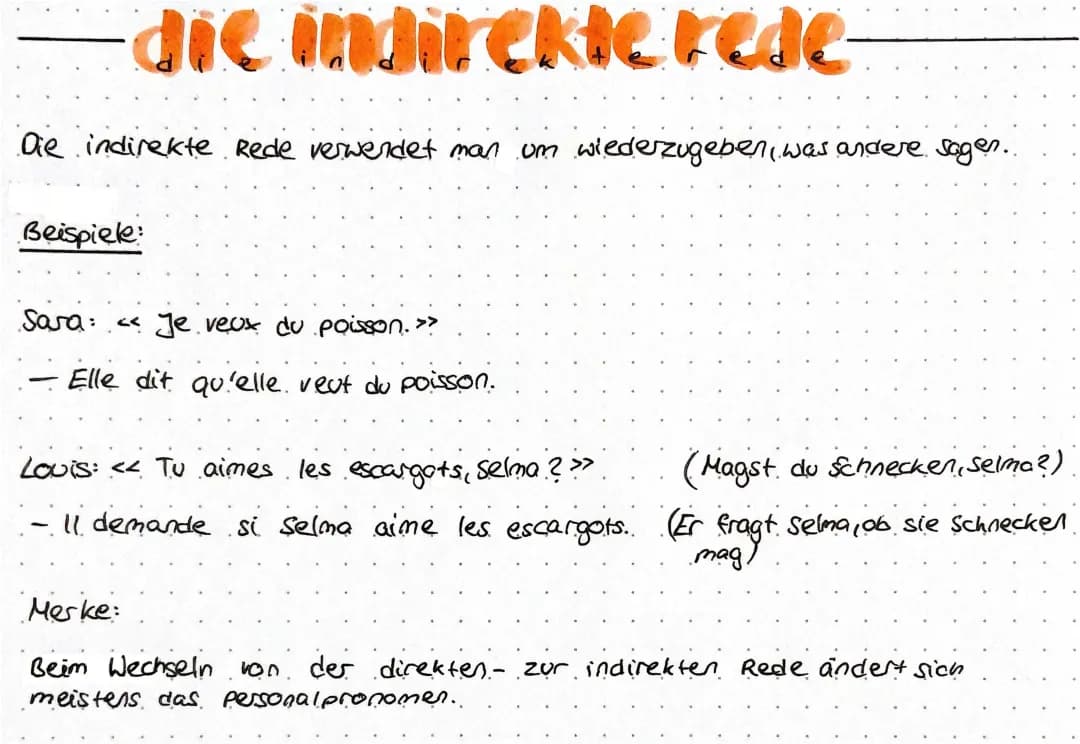 die indirekte rede
Die indirekte Rede verwendet man um wiederzugeben, was andere sagen.
Beispiele:
Sara: << Je veux du poisson. >>
- Elle dit qu'elle veut du poisson.
Louis: << Tu aimes les escargots, Selma? >> (Magst du Schnecken, Selma?)
- Il demande si Selma aime les escargots. (Er fragt Selma, ob sie Schnecken
mag)
Merke:
Beim Wechseln von der direkten- zur indirekten Rede ändert sich
meistens das Personalpronomen.